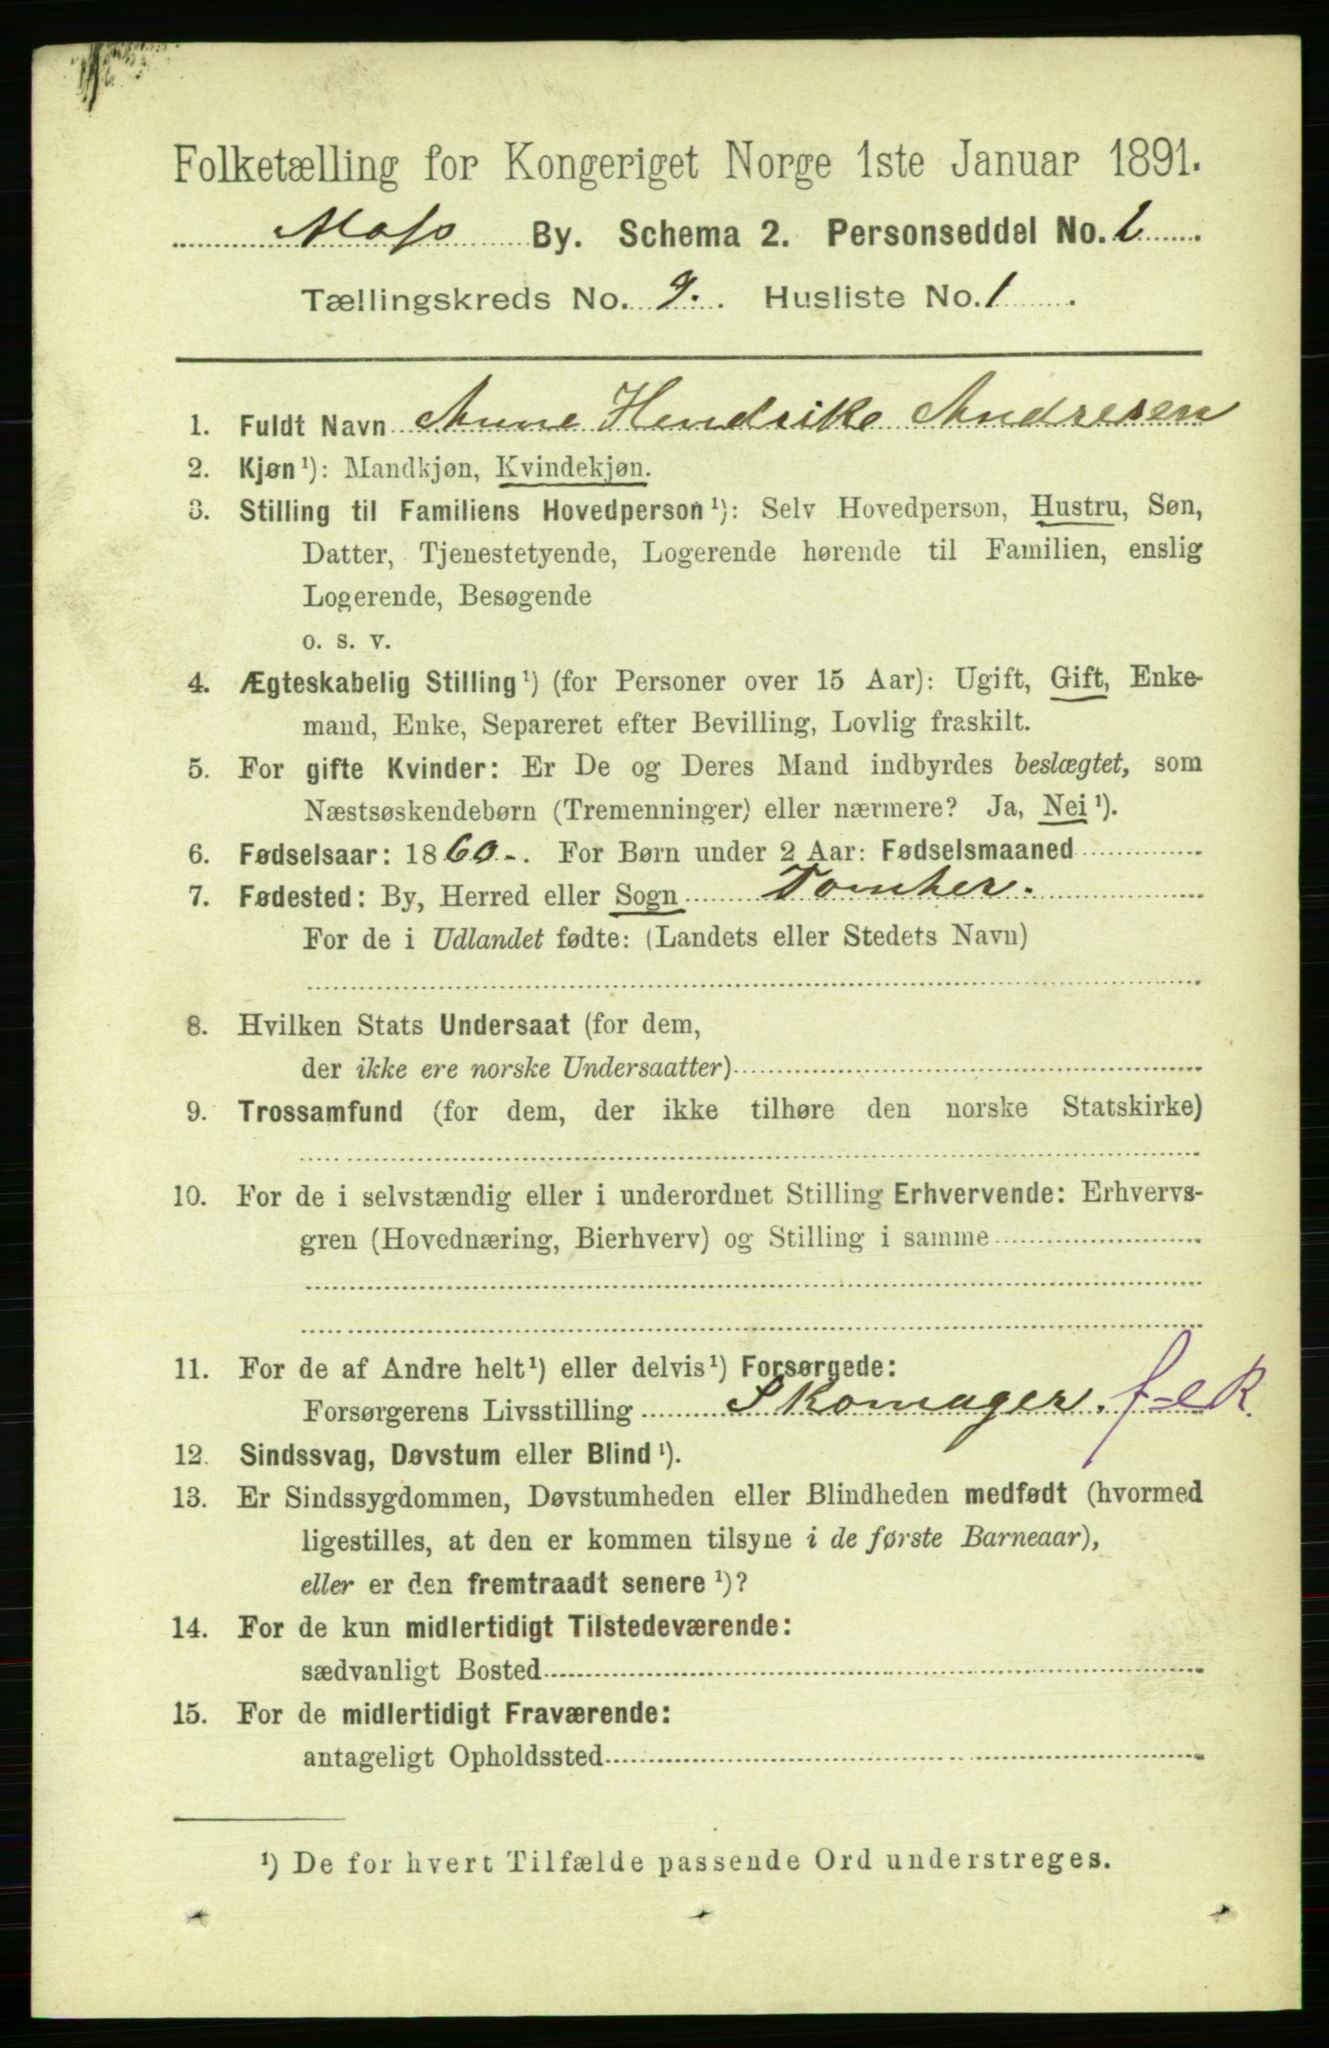 Folketælling for Kongeriget Norge 1ste Januar 1891.
Moss By. Schema 2. Personseddel No. 2
Tællingskreds No. 9. Husliste No. 1.
1. Fuldt Navn Anne Hendrike Andresen
2. Kjøn¹): Mandkjøn, Kvindekjøn.
3. Stilling til Familiens Hovedperson¹): Selv Hovedperson, Hustru, Søn,
Datter, Tjenestetyende, Logerende hørende til Familien, enslig
Logerende, Besøgende
o. s. v.
4. Ægteskabelig Stilling¹) (for Personer over 15 Aar): Ugift, Gift, Enke-
mand, Enke, Separeret efter Bevilling, Lovlig fraskilt.
5. For gifte Kvinder: Er De og Deres Mand indbyrdes beslægtet, som
Næstsøskendebørn (Tremenninger) eller nærmere? Ja, Nei¹).
6. Fødselsaar: 1860-. For Børn under 2 Aar: Fødselsmaaned
7. Fødested: By, Herred eller Sogn Tomter.
For de i Udlandet fødte: (Landets eller Stedets Navn)
8. Hvilken Stats Undersaat (for dem,
der ikke ere norske Undersaatter)
9. Trossamfund (for dem, der ikke tilhøre den norske Statskirke)
10. For de i selvstændig eller i underordnet Stilling Erhvervende: Erhvervs-
gren (Hovednæring, Bierhverv) og Stilling i samme
11. For de af Andre helt¹) eller delvis¹) Forsørgede:
Forsørgerens Livsstilling Skomager. f=eR.
12. Sindssvag, Døvstum eller Blind¹).
13. Er Sindssygdommen, Døvstumheden eller Blindheden medfødt (hvormed
ligestilles, at den er kommen tilsyne i de første Barneaar),
eller er den fremtraadt senere¹)?
14. For de kun midlertidigt Tilstedeværende:
sædvanligt Bosted
15. For de midlertidigt Fraværende:
antageligt Opholdssted
¹) De for hvert Tilfælde passende Ord understreges.